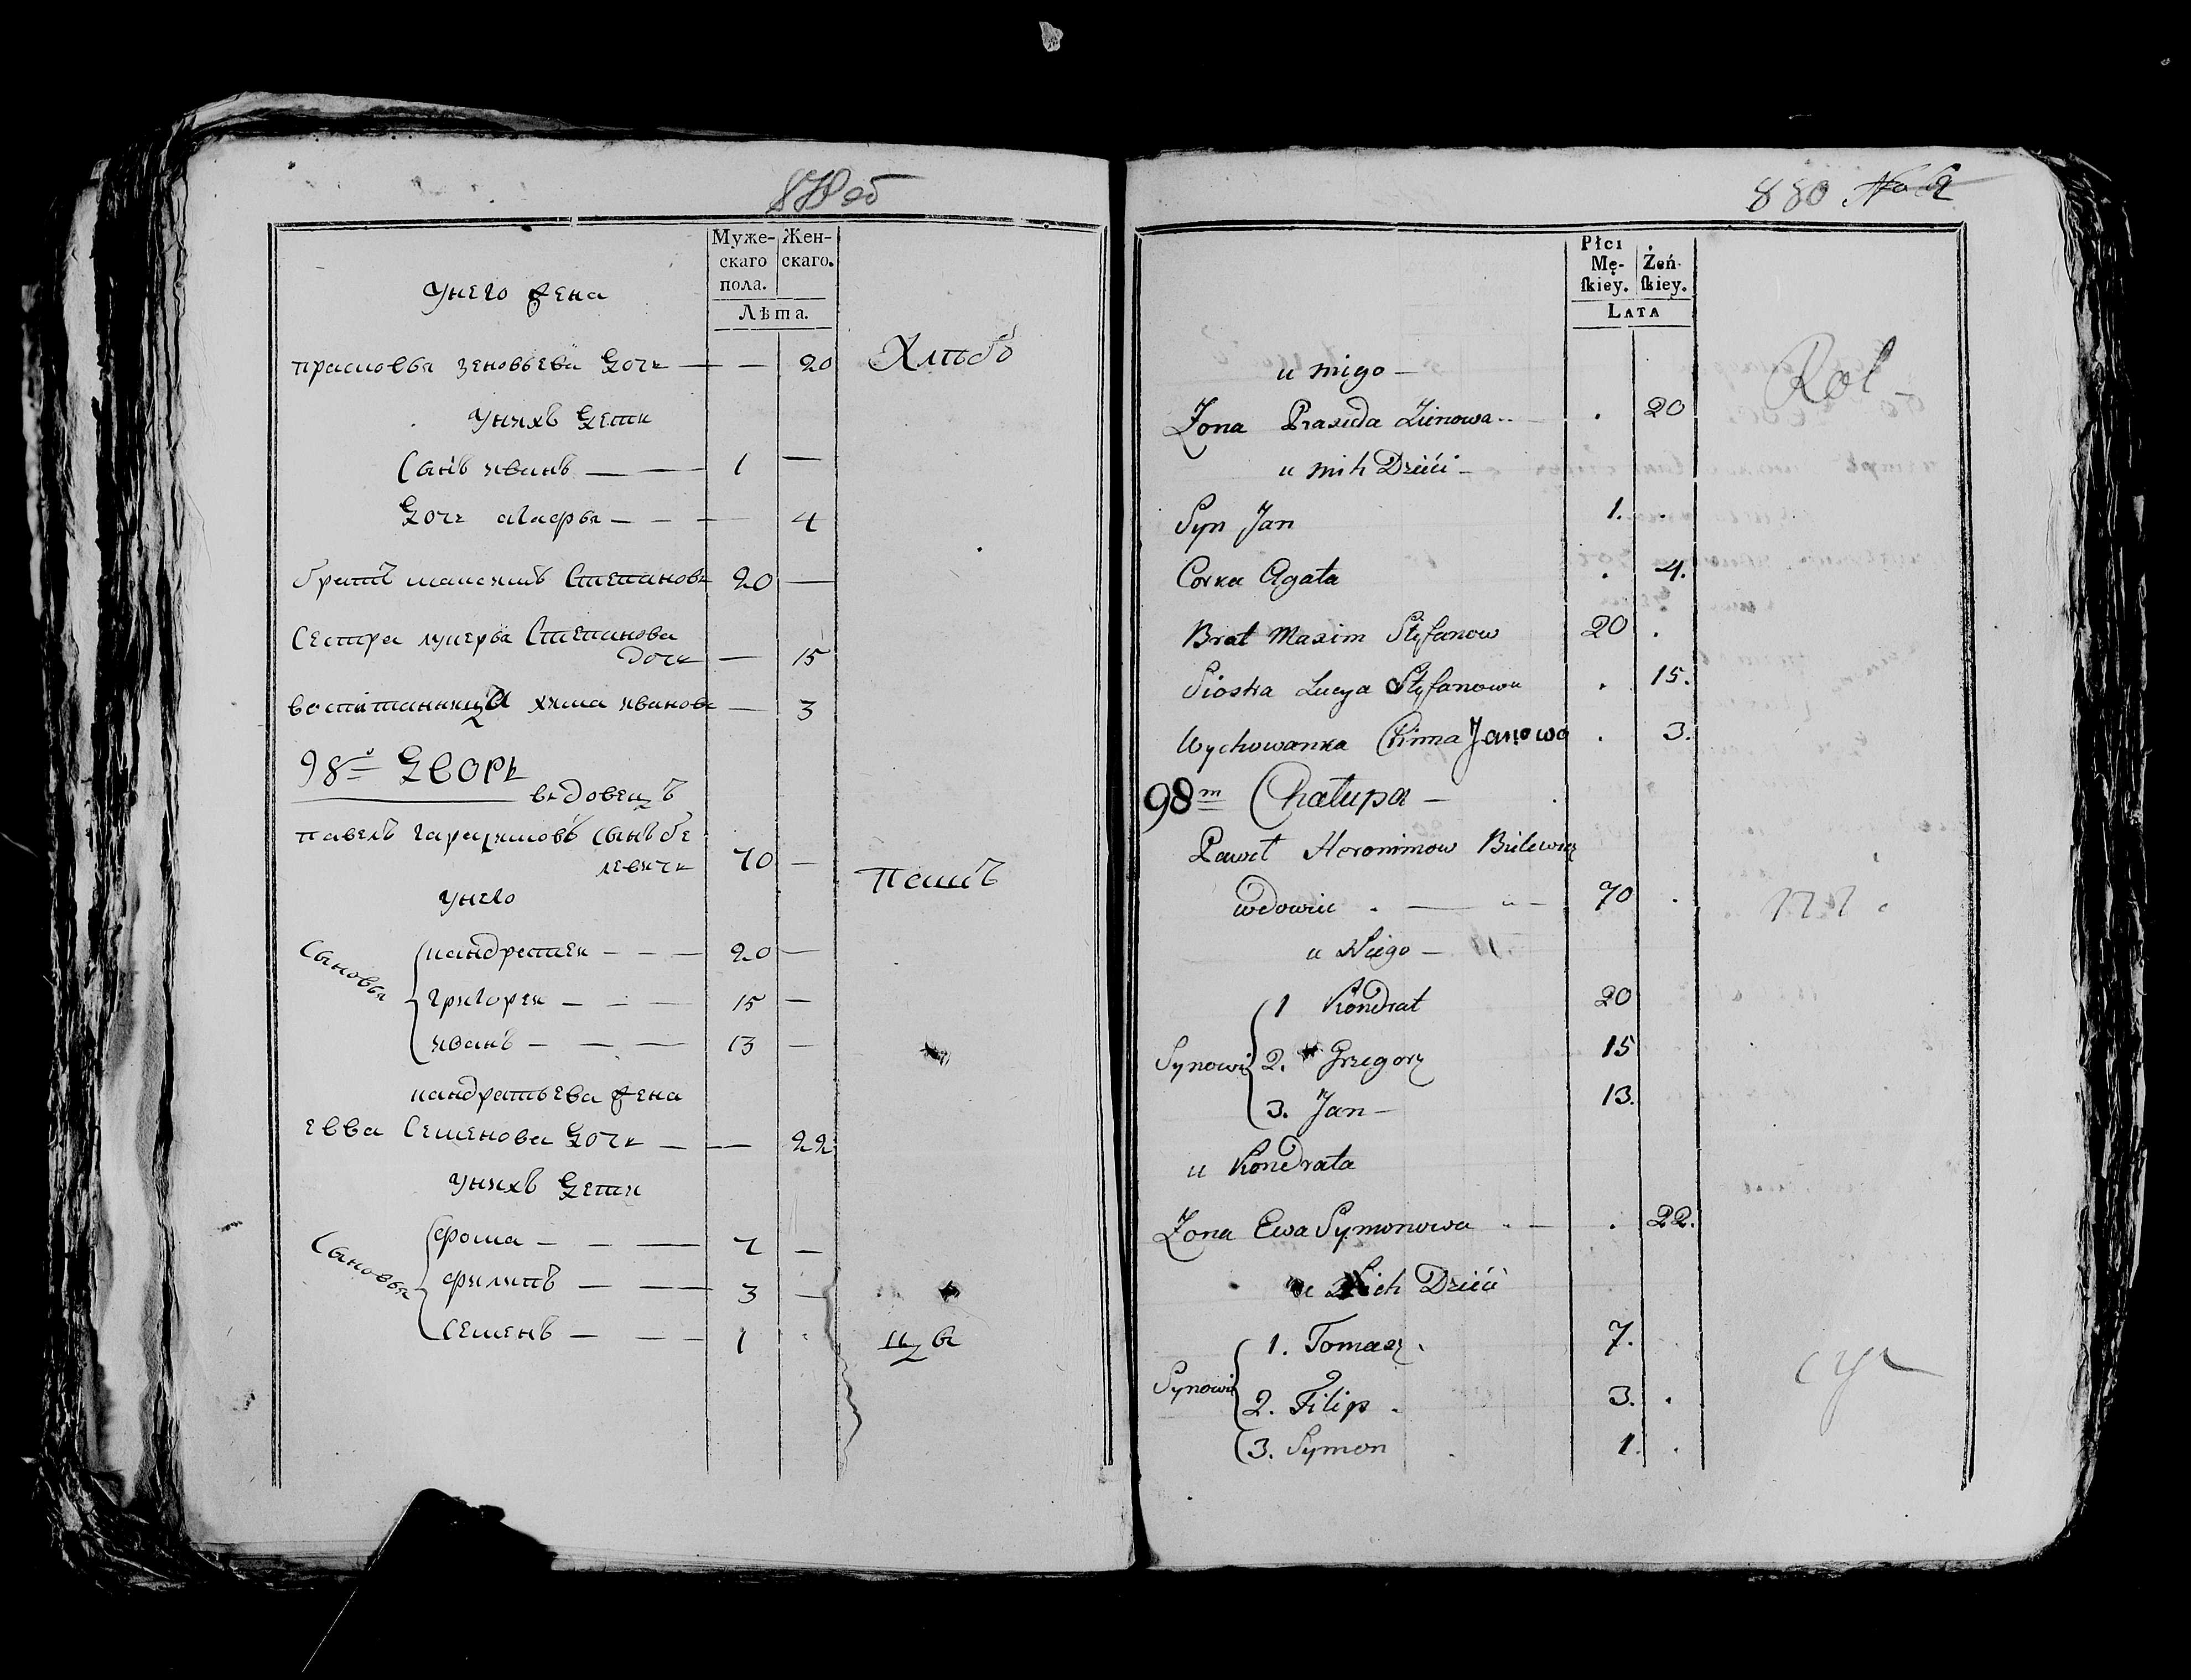 Муже-
скаго
пола.
Жен-
скаго.
Лѣта.
унего жена
прасковья зеновьева дочь — — 20
Хлѣбо
унихъ дети
Сынъ иванъ — — 1 —
дочь агафья — — — 4
братъ максимъ Степановъ 20 —
Сестра лукерья Степанова
дочь — 15
воспитанница хима иванова — 3
98й дворъ
вдовецъ
павелъ гарасимовъ сынъ бе
левичь 70 —
Пашъ
унего
Сыновья
кандратей — — — 20 —
григорей — — — 15 —
иванъ — — — 13 —
кандратьева жена
евва Семенова дочь — — 22
унихъ дети
Сыновья
фома — — — 7 —
филипъ — — — 3 —
Семенъ — — — 1
880
Płci
Mę-
ſkiey.
Żeń-
ſkiey.
LATA
Rol
u niego —
Zona Praxeda Zienowa . 20
u nich Dzieci —
Syn Jan 1. .
Corka Agata . 4.
Brat Maxim Stefanow 20 .
Siostra Lucya Stefanowa . 15.
Wychowanka Chima Janowa . 3.
98m Chałupa —
Paweł Heronimow Bielewicz
wdowiec . — 70 .
u Niego —
Synowie
1 Kondrat 20
2. Grzegorz 15
3. Jan — 13.
u Kondrata
Zona Ewa Symonowa . 22.
u Nich Dzieci
Synowie
1. Tomasz. 7.
2. Filip . 3. .
3. Symon 1. .